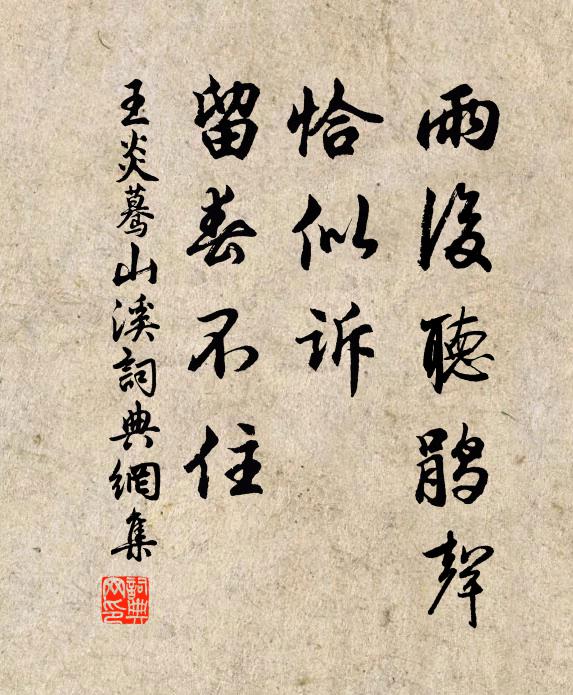 雨後聽鵑聲
恰似訴
留春不住
王炎蓦山溪詞典網集
詞典網印